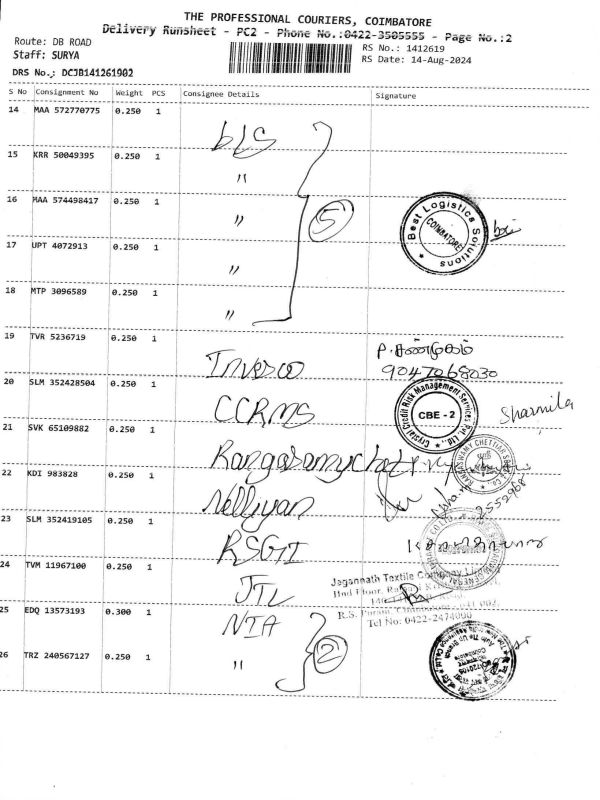 THE PROFESSIONAL COURIERS, COIMBATORE
Delivery Runsheet - PC2 - Phone No.:0422-3505555 - Page No.:2
Route: DB ROAD
RS No.: 1412619
Staff: SURYA
RS Date: 14-Aug-2024
DRS No.: DCJB141261902
S No Consignment No Weight PCS Consignee Details Signature
14 MAA 572770775 0.250 1 bLS
15 KRR 50049395 0.250 1 "
16 MAA 574498417 0.250 1 " 5
Best Logistics Solutions
COIMBATORE
17 UPT 4072913 0.250 1 "
18 MTP 3096589 0.250 1 "
19 TVR 5236719 0.250 1 Invesco
P. சண்முகம்
9047068030
20 SLM 352428504 0.250 1 CCRMS
Crystal Credit Risk Management Services Pvt. Ltd.,
CBE - 2
Sharmila
21 SVK 65109882 0.250 1
22 KDI 983828 0.250 1 Nelliyan
23 SLM 352419105 0.250 1 RSGI
24 TVM 11967100 0.250 1 JTL
Jagannath Textile Company
R.S. Puram, Coimbatore
Tel No: 0422-2474000
25 EDQ 13573193 0.300 1 NIA
26 TRZ 240567127 0.250 1 " 2